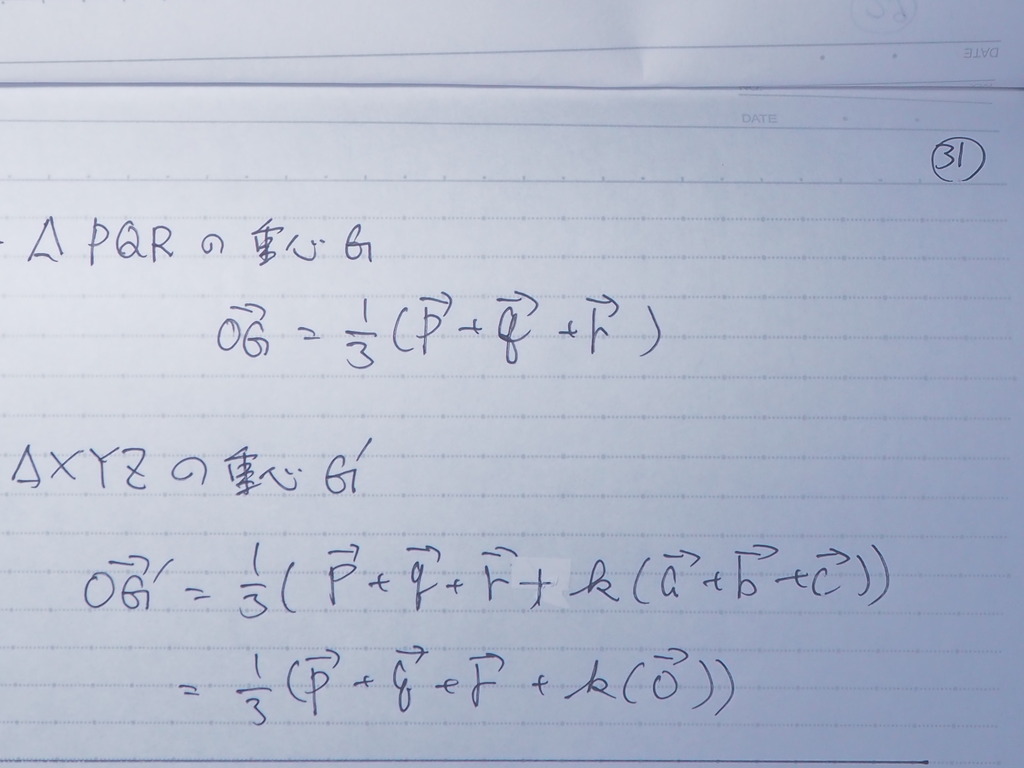 DATE
DATE
㉛
△PQRの重心G
$\overrightarrow{OG} = \frac{1}{3}(\vec{p} + \vec{q} + \vec{r})$
△XYZの重心G′
$\overrightarrow{OG'} = \frac{1}{3}(\vec{p} + \vec{q} + \vec{r} + k(\vec{a} + \vec{b} + \vec{c}))$
$= \frac{1}{3}(\vec{p} + \vec{q} + \vec{r} + k(\vec{0}))$